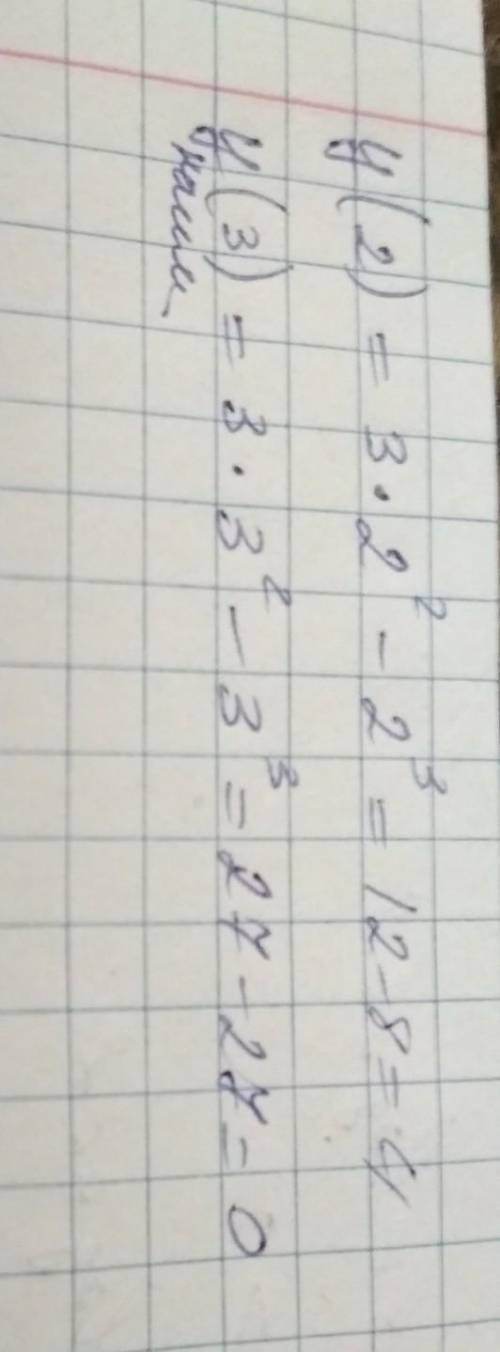 y(2) = 3·2² - 2³ = 12 - 8 = 4
y(3) = 3·3² - 3³ = 27 - 27 = 0
наим